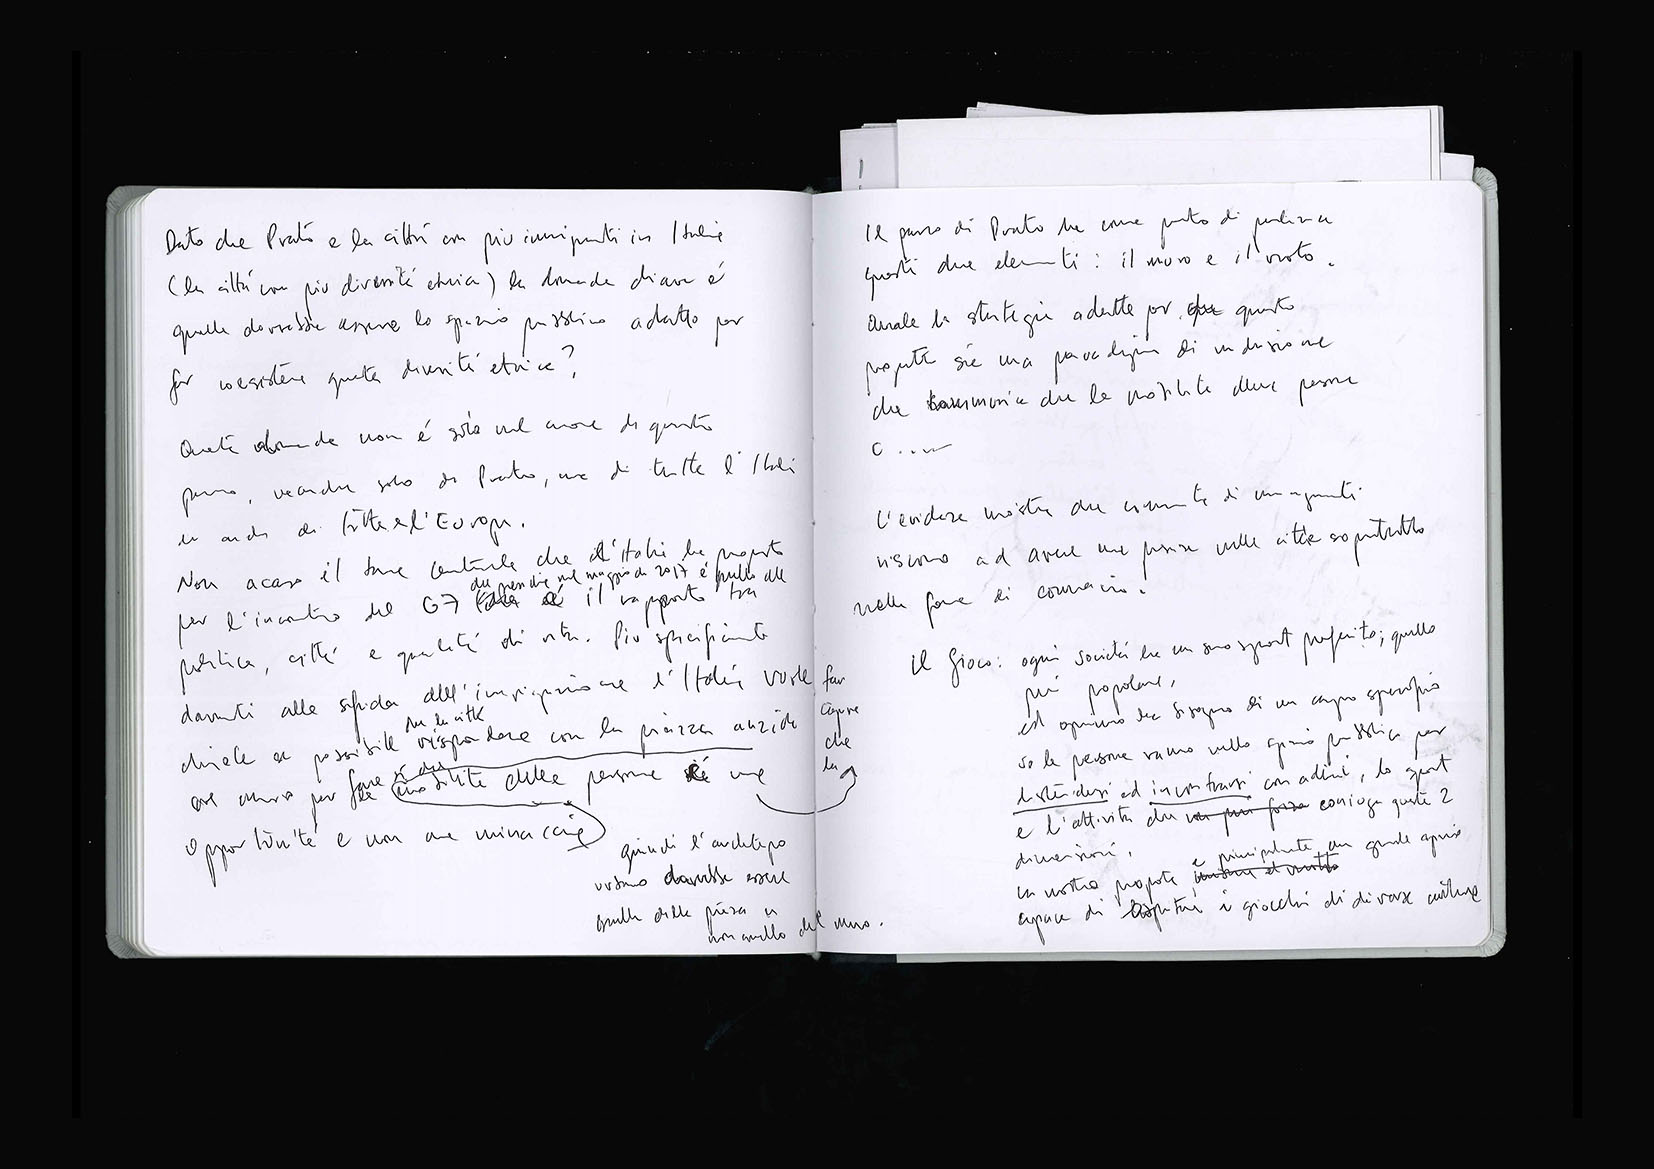 Dato che Prato e la città con piu immigrati in Italia
(la città con piu diversità etnica) la domanda chiave è
quale dovrebbe essere lo spazio pubblico adatto per
far coesistere questa diversità etnica?
Questa domanda non é solo nel cuore di questo
parco, neanche solo di Prato, ma di tutta l'Italia
e anche di tutta l'Europa.
Non a caso il tema centrale che l'Italia ha proposto
per l'incontro del G7 che prenche nel maggio di 2017 é quello del
il rapporto tra
politica, città e qualità di vita. Piu specificamente
davanti alla sfida dell'immigrazione l'Italia vuole far
capire
che
la
chiede se possibile che la città rispondere con la piazza anziché
con muro per fare si che
la mobilità delle persone é una
opportunità e non una minaccia
quindi l'architepo
urbano dovrebbe essere
quello della piazza e
non quello del muro.
Il parco di Prato ha come punto di partenza
questi due elementi: il muro e il vuoto.
Quale la strategia adatta per questo
progetto sia una paradigma di inclusione
che che la mobilità delle persone
c....
L'evidenza mostra che comunità di immigranti
riescono ad avere una presenza nelle città sopratutto
nella forma di commercio.
Il Gioco: ogni società ha un suo sport preferito, quello
piú popolare,
ed ognuno ha bisogno di un campo specifico
se le persone vanno nello spazio pubblico per
distendersi ed incontrarsi con altri, lo sport
e l'attività che con piú forza coniuga queste 2
dimensioni.
La nostra proposta e principalmente un grande spazio
capace di ospitare i giochi di diverse culture